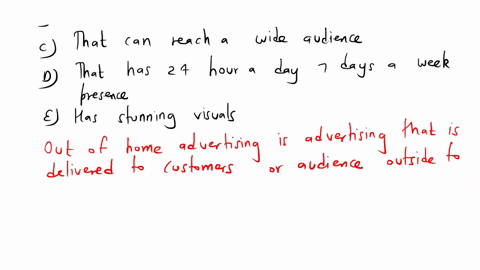 C) That can reach a wide audience
D) That has 24 hour a day 7 days a week
presence
E) Has stunning visuals
Out of home advertising is advertising that is
delivered to customers or audience outside to